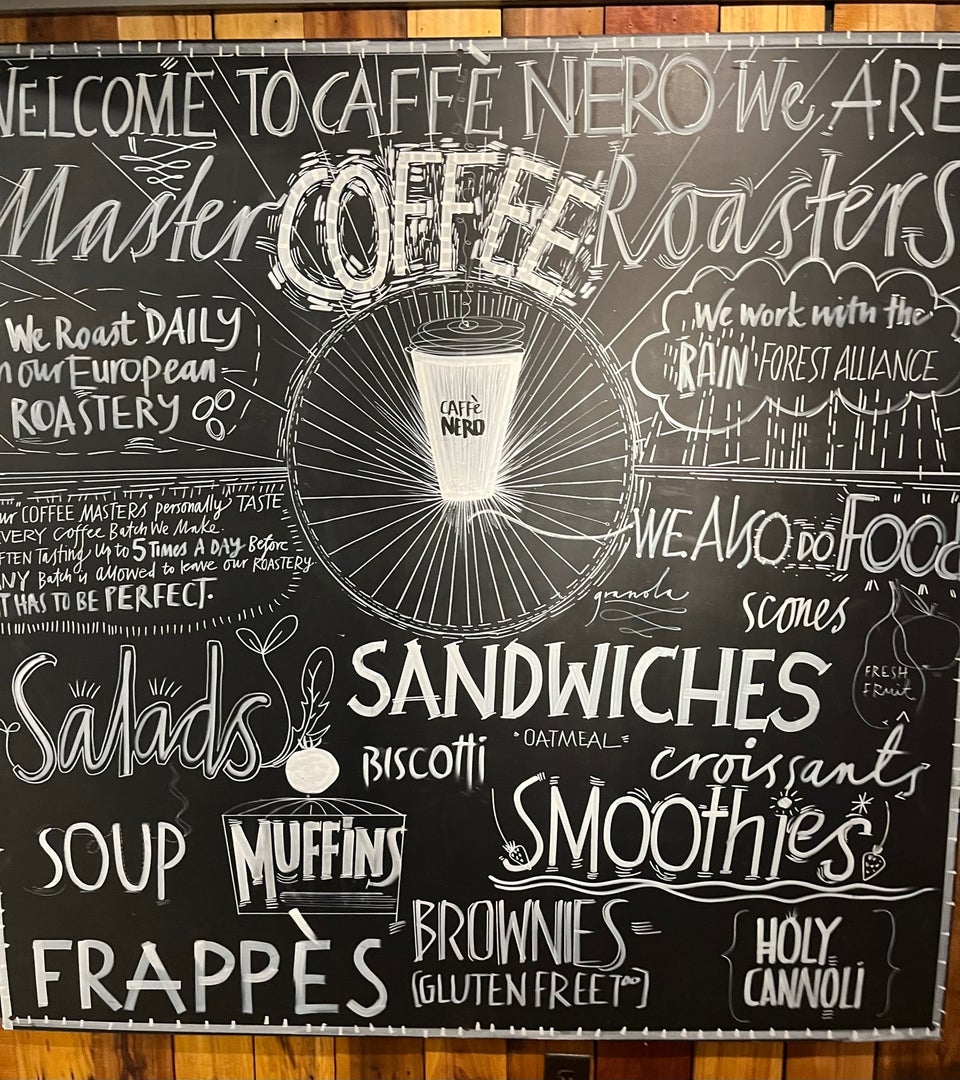 WELCOME TO CAFFÈ NERO We ARE
Master COFFEE Roasters
We Roast DAILY
in our European
ROASTERY
We work with the
RAIN FOREST ALLIANCE
CAFFÈ
NERO
our "COFFEE MASTERS personally" TASTE
EVERY Coffee Batch We Make.
OFTEN Tasting Up to 5 Times A DAY Before
ANY Batch is allowed to leave our ROASTERY.
IT HAS TO BE PERFECT.
WE Also DO Food
granola
scones
FRESH
Fruit
Salads
SANDWICHES
"OATMEAL"
Biscotti
croissants
SMOOthies
SOUP
MUFFiNS
BROWNIES
[GLUTEN FREE Too]
FRAPPÈS
HOLY
CANNOLi